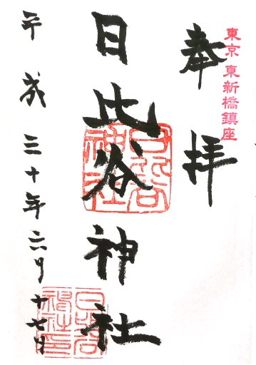 東京 東新橋鎮座
奉拝
日比谷神社
日比谷神社
平成三十年六月十七日